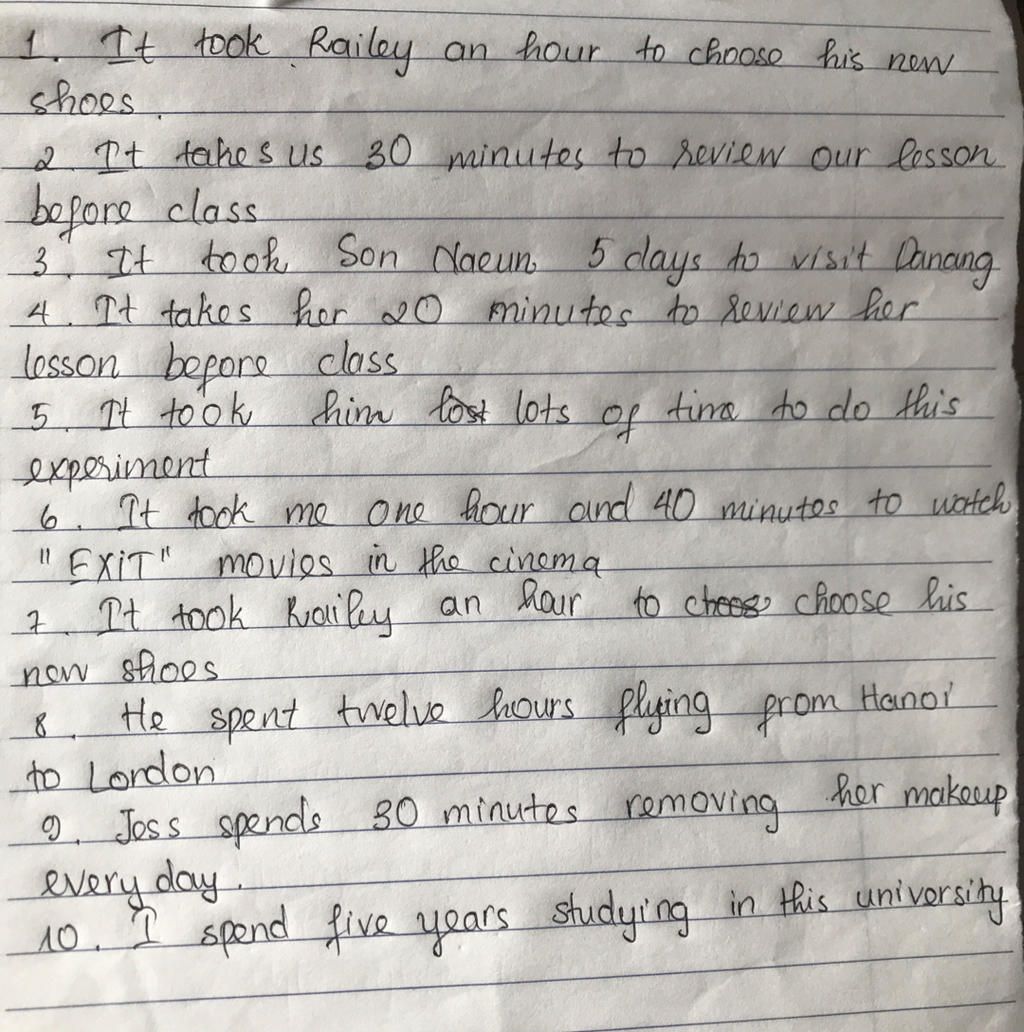 1. It took Railey an hour to choose his new
shoes.
2 It takes us 30 minutes to review our lesson
before class
3. It took Son Naeun 5 days to visit Danang
4. It takes her 20 minutes to review her
lesson before class
5. It took him lost lots of time to do this
experiment
6. It took me one hour and 40 minutes to watch
"EXIT" movies in the cinema
7. It took Railey an hour to choose his
new shoes
8. He spent twelve hours flying from Hanoi
to London
9. Jess spends 30 minutes removing her makeup
every day.
10. I spend five years studying in this university